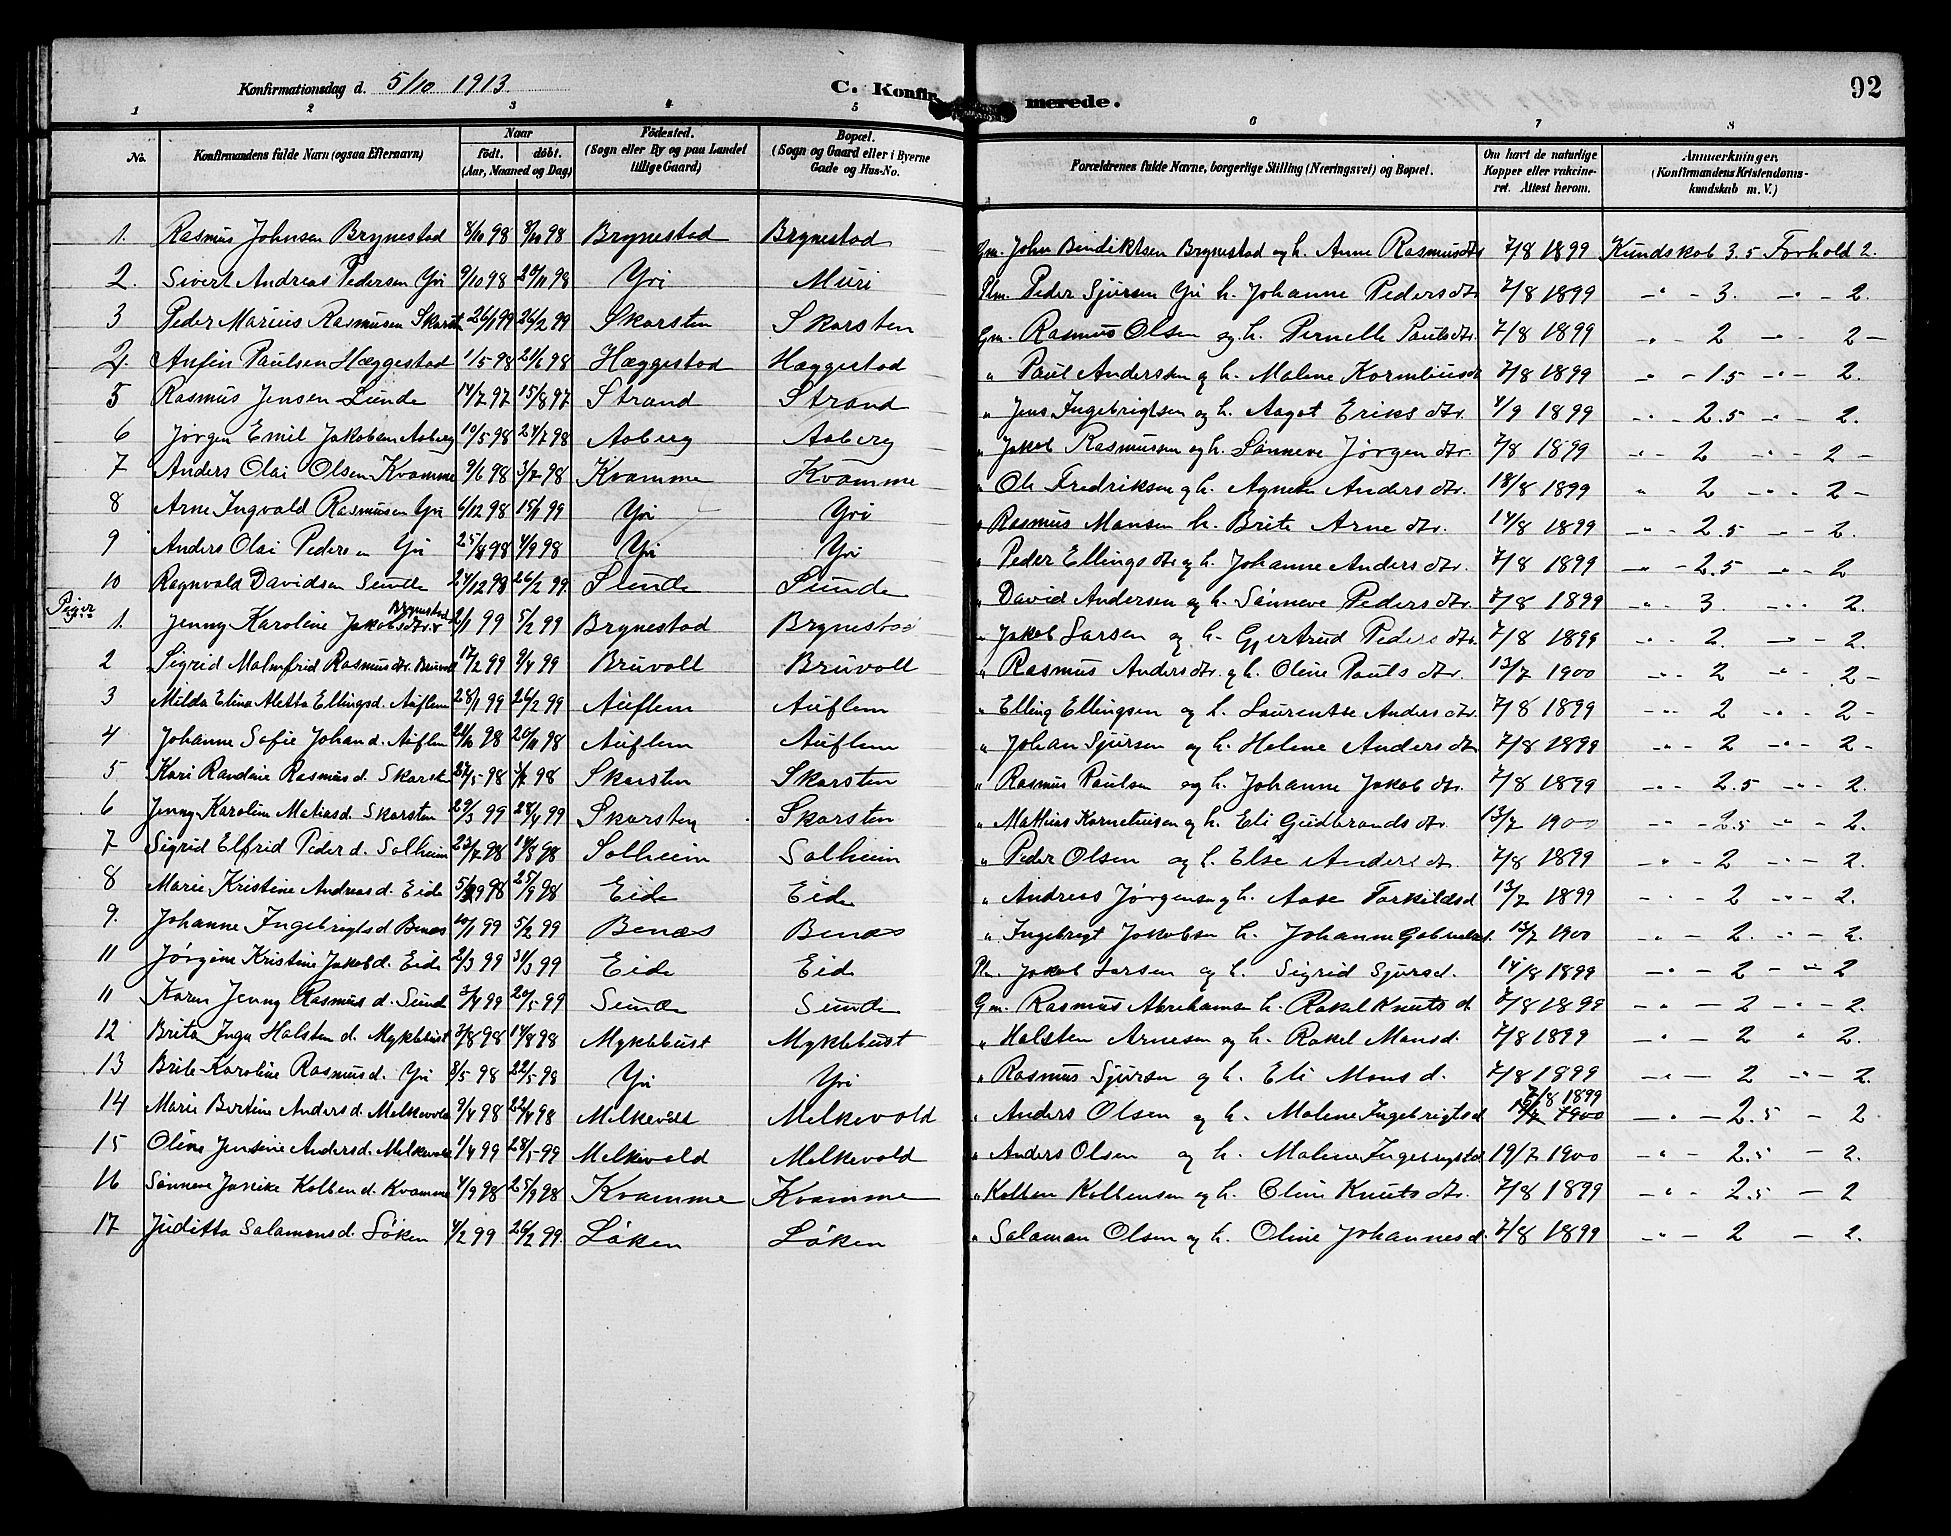 92
Konfirmationsdag d. 5/10 1913. C. Konfirmerede.
1 2 3 4 5 6 7 8
No. Konfirmandens fulde Navn (ogsaa Efternavn) Naar født. døbt. (Aar, Maaned og Dag) Fødested. (Sogn eller By og paa Landet tillige Gaard) Bopæl. (Sogn og Gaard eller i Byerne Gade og Hus-No. Forældrenes fulde Navne, borgerlige Stilling (Næringsvei) og Bopæl. Om havt de naturlige Kopper eller vakcineret. Attest herom. Anmerkninger. (Konfirmandens Kristendomskundskab m. V.)
1. Rasmus Johnsen Brynestad 8/10 98 8/10 98 Brynestad Brynestad Gm. John Bendiktsen Brynestad og h. Anne Rasmusdtr 7/8 1899 Kundskab 3.5 Forhold 2.
2. Sivert Andreas Pedersen Yri 9/10 98 20/11 98 Yri Muri Plm. Peder Sjursen Yri h. Johanne Pedersdtr 7/8 1899 - " - 3. - " - 2.
3 Peder Marius Rasmusen Skarsten 26/1 99 26/2 99 Skarsten Skarsten Gm. Rasmus Olsen og h. Pernelle Paulsdtr. 7/8 1899 - " - 2 - " - 2 -
4. Anfin Paulsen Hæggestad 1/5 98 21/6 98 Hæggestad Hæggestad " Paul Andersen og h. Malene 7/8 1899 - " - 1.5 - " - 2.
5 Rasmus Jensen Lunde 14/7 97 15/8 97 Strand Strand " Jens Ingebrigtsen og h. Aagot Eriksdtr. 4/9 1899 - " - 2.5 - " - 2.
6 Jørgen Emil Jakobsen Aaberg 10/5 98 24/7 98 Aaberg Aaberg " Jakob Rasmussen og h. Sønneve Jørgendtr. 7/8 1899 - " - 2 - " - 2 -
7 Anders Olai Olsen Kvamme 9/6 98 3/7 98 Kvamme Kvamme " Ole Fredriksen og h. Agnete Andersdtr. 18/8 1899 " 2 - " - 2 -
8 Arne Ingvald Rasmusen Yri 6/12 98 15/1 99 Yri Yri " Rasmus Monsen h. Brite Arnedtr. 14/8 1899 - " - 2.5 - " - 2.
9 Anders Olai Pedersen Yri 25/8 98 4/9 98 Yri Yri " Peder Ellingsdtr og h. Johanne Andersdtr. 7/8 1899 - " - 2.5 - " - 2
10 Ragnvald Davidsen Sunde 24/12 98 26/2 99. Sunde Sunde " David Andersen og h. Sønneve Pedersdtr. 7/8 1899 - " - 3. - " - 2.
Piger
1. Jenny Karoline Jakobsdtr. Brynestad 2/1 99 5/2 99 Brynestad Brynestad " Jakob Larsen og h. Gjertrud Pedersdtr. 7/8 1899 - " - 2. - " - 2.
2 Sigrid Malmfrid Rasmusdtr. Bruvoll 17/2 99 9/4 99 Bruvoll Bruvoll " Rasmus Andersdtr. og h. Oline Paulsdtr. 13/7 1900 - " - 2 - " - 2 -
3 Milda Elina Aletta Ellingsd. Auflem 28/1 99 26/2 99 Auflem Auflem " Elling Ellingsen og h. Laurentse Andersdtr. 7/8 1899 - " - 2 - " - 2 -
4 Johanne Sofie Johand. Auflem 21/10 98 20/11 98 Auflem Auflem " Johan Sjursen og h. Helene Andersdtr 7/8 1899 - " - 2 - " - 2 -
5 Kari Randine Rasmusd. Skarsten 98 Skarsten Skarsten " Rasmus Paulsen og h. Johanne Jakobdtr. 7/8 1899 - " - 2.5 - " - 2.
6 Jenny Karoline Matiasd. Skarsten 29/3 99 24/4 99 Skarsten Skarsten " Mathias Korneliusen og h. Eli Gudbrandsdtr. 13/7 1900 - " - 2.5 - " - 2.
7 Sigrid Elfrid Pederd. Solheim 23/7 98 14/8 98 Solheim Solheim " Peder Olsen og h. Else Andersdtr. 7/8 1899 - " - 2 - " - 2.
8 Marie Kristine Andreasd. Eide 98 25/9 98 Eide Eide " Andreas Jørgensen og h. Aase Torkildsd. 13/7 1899 - " - 2 - " - 2.
9. Johanne Ingebrigtsd Benæs 10/1 99 5/2 99 Benæs Benæs " Ingebrigt Jakobsen h. Johanne Gabrielsd. 13/7 1900 - " - 2. - " - 2.
11 Jørgine Kristine Jakobd. Eide 2/3 99 31/3 99 Eide Eid Pl. Jakob Larsen og h. Sigrid Sjursd. 14/8 1899 - " - 2 - " - 2
11 Karen Jenny Rasmusd. Sunde 3/4 99 20/5 99 Sunde Sunde Gm. Rasmus Abrahams h. Rakel Knutsd. 7/8 1899 - " - 2 - " - 2.
12 Brita Inga Halstend. Myklebust 3/8 98 14/8 98 Myklebust Myklebust " Halsten Arnesen og h. Rakel Monsd. 7/8 1899 - " - 2 " 2.
13 Brite Karoline Rasmusd. Yri 8/5 98 22/5 98 Yri Yri " Rasmus Sjursen og h. Eli Monsd. 7/8 1899 - " - 2 - " - 2.
14 Marie Bertine Andersd. Melkevold 9/4 98 22/4 98 Melkevold Melkevold " Anders Olsen og h. Malene Ingebrigtsd 7/8 1899 1900 - " - 2.5 - 2
15 Oline Jensine Andersd. Melkevold 1/4 99 28/5 99 Melkevold Melkevold " Anders Olsen og h. Malene Ingebrigtsd 19/7 1900 - " - 2.5 - 2.
16 Sønneve Janike Kolbend. Kvamme 4/9 98 25/9 98 Kvamme Kvamme " Kolben Kolbensen og h. Oline Knutsdtr. 7/8 1899 - " - 2.5 - 2
17 Juditta Salamonsd. Løken 4/2 99 26/2 99. Løken Løken " Salaman Olsen og h. Oline Johannesd. 7/8 1899 - " - 2 - 2.